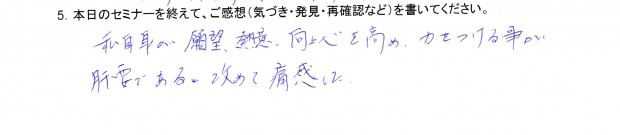 5. 本日のセミナーを終えて、ご感想（気づき・発見・再確認など）を書いてください。
私自身が願望、熱意、向上心を高め、力をつける事が
肝要であると改めて痛感した。